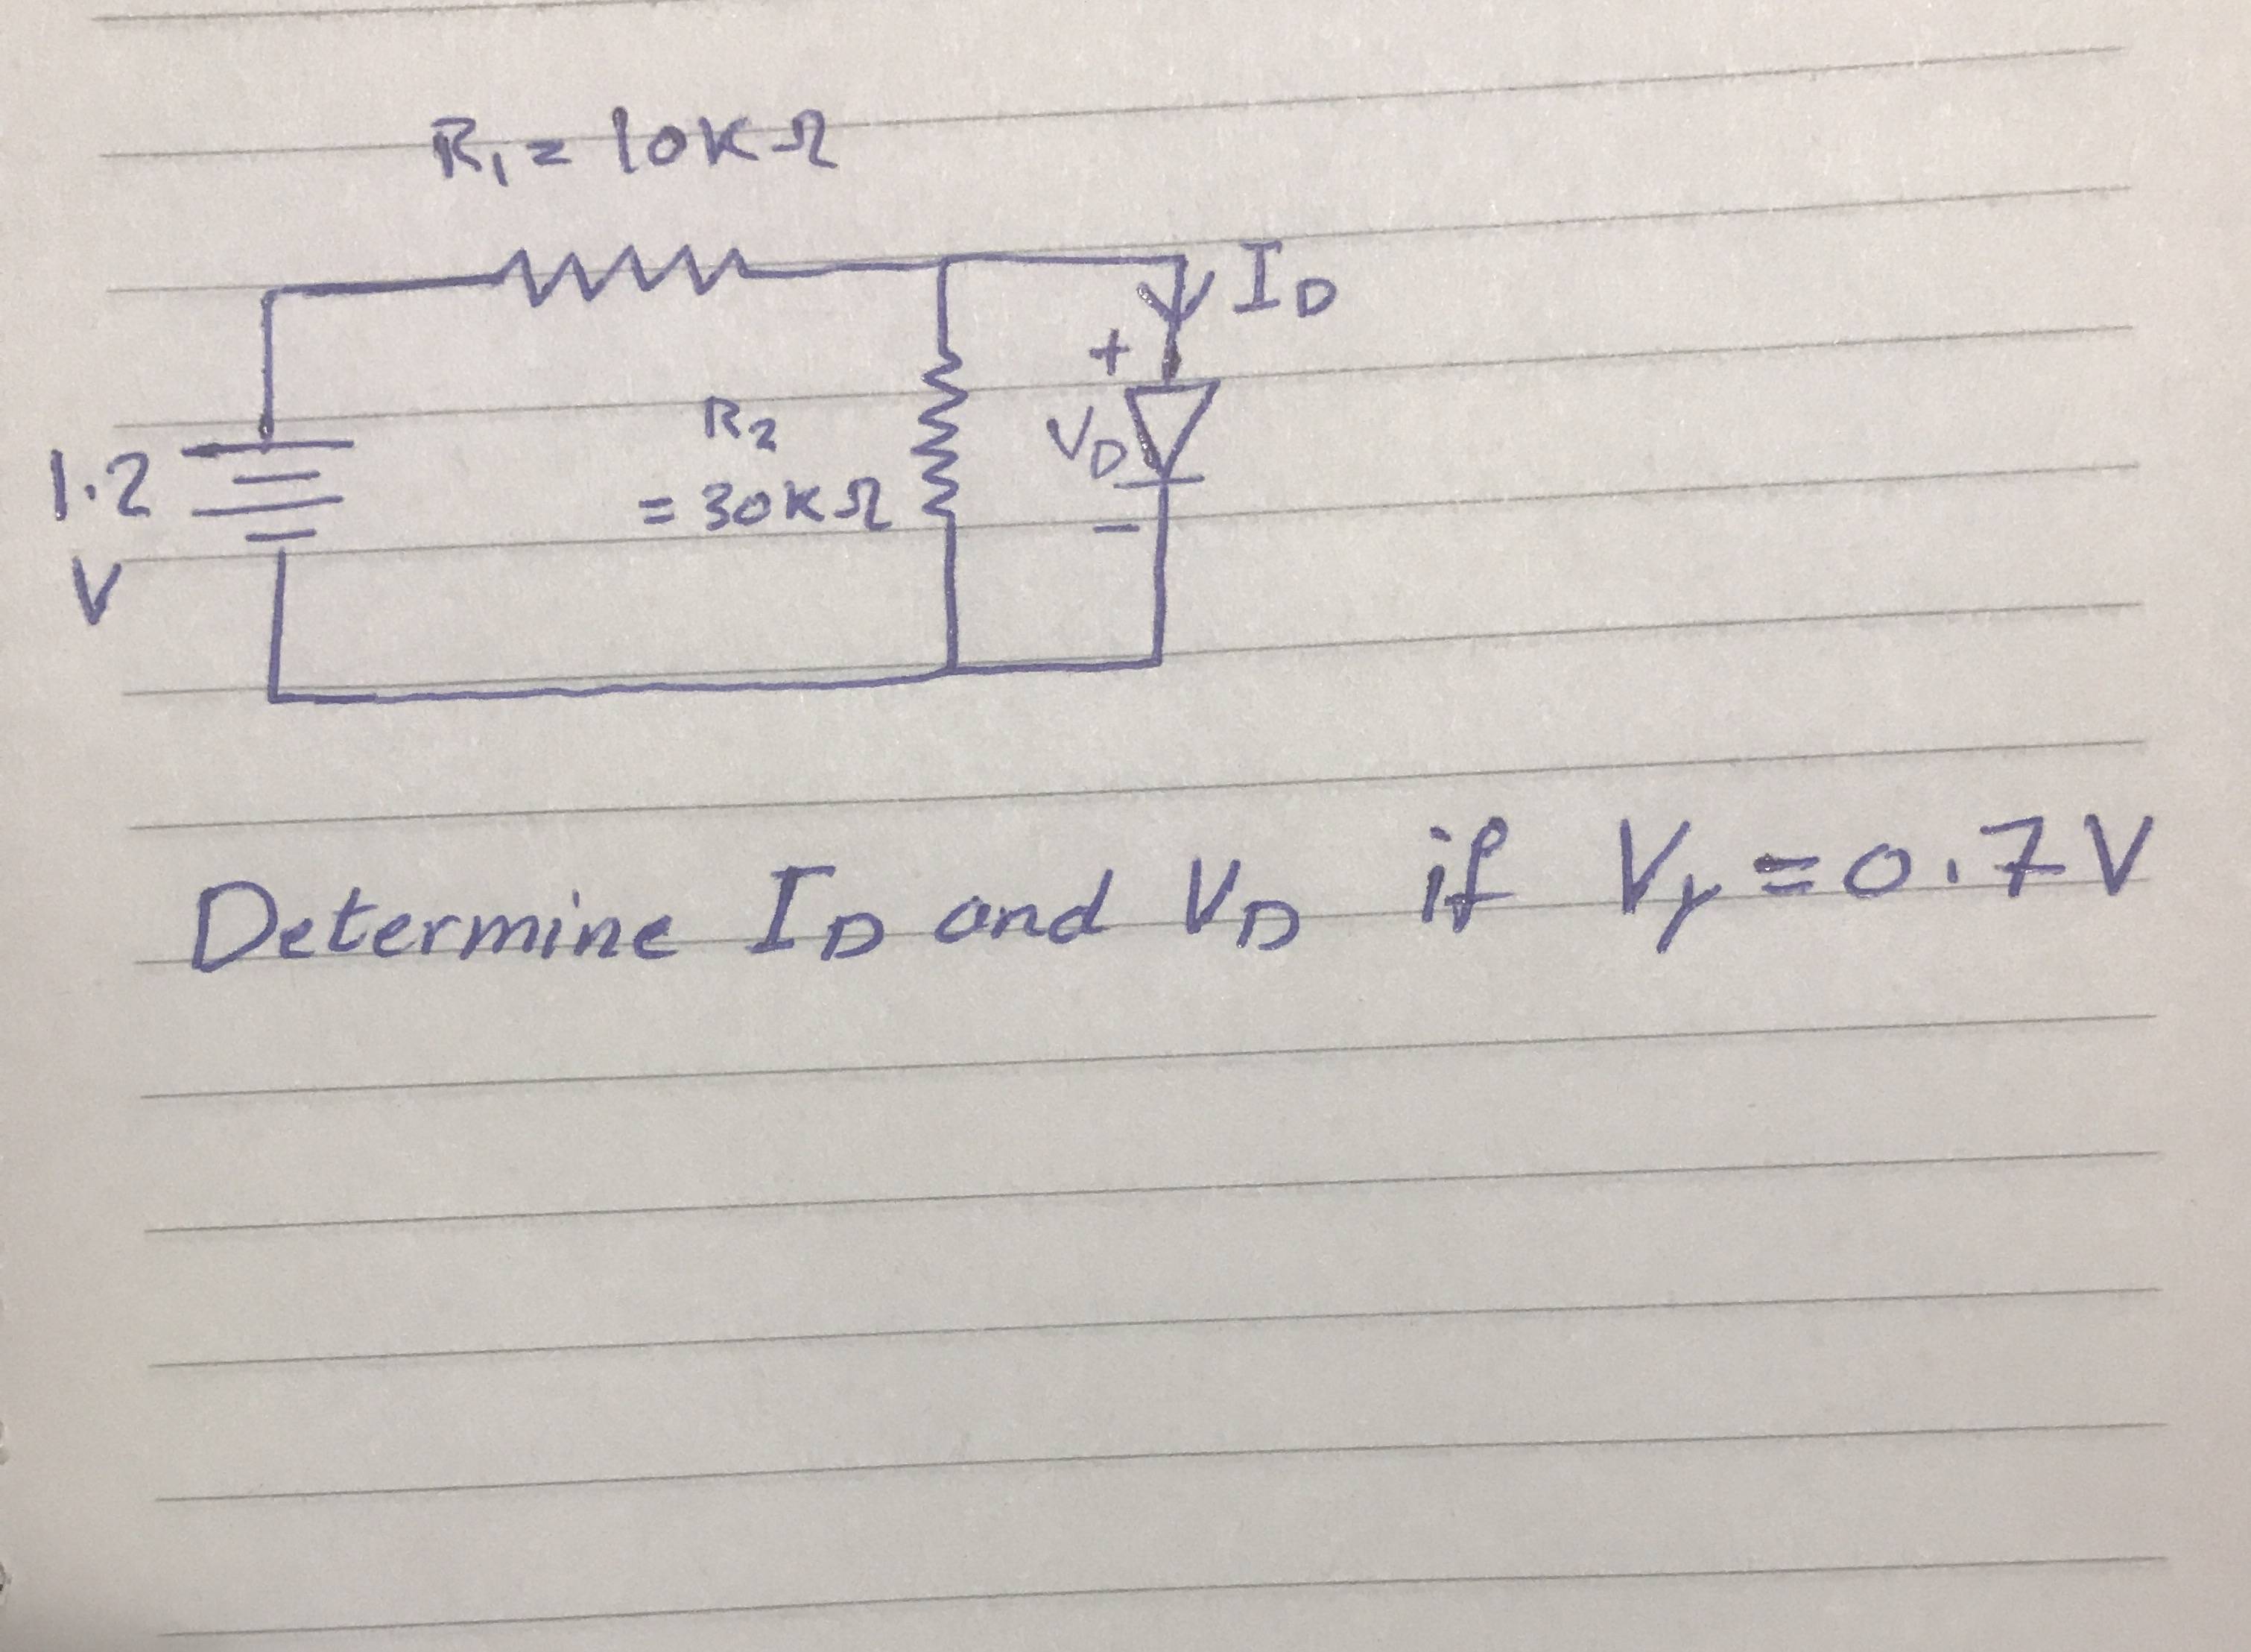 R₁ = 10KΩ
I_D
+
R₂
V_D
1.2
= 30KΩ
−
V
Determine I_D and V_D if Vγ = 0.7V